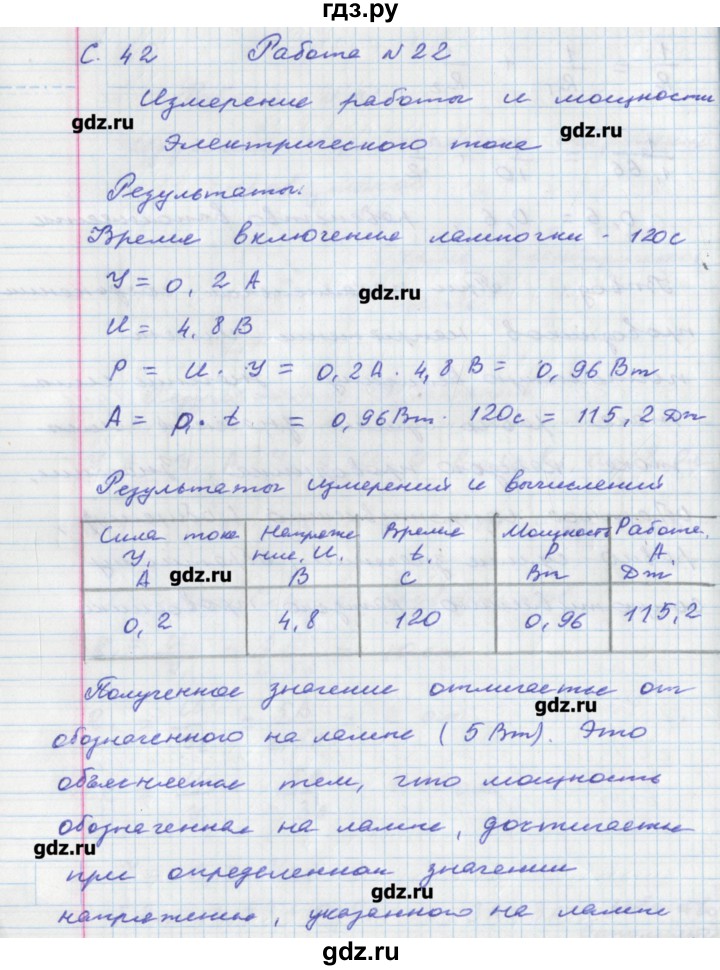 гдз.ру
С. 42 Работа N 22
Измерение работы и мощности
gdz.ru gdz.ru
электрического тока
Результаты:
Время включения лампочки - 120с
У = 0,2 А
gdz.ru
И = 4,8 В
Р = И · У = 0,2А · 4,8 В = 0,96 Вт
А = р · t = 0,96Вт · 120с = 115,2 Дж
Результаты измерений и вычислений
Сила тока У, А | Напряжение, И, В | Время t, с | Мощность Р Вт | Работа, А, Дж
gdz.ru
0,2 | 4,8 | 120 | 0,96 | 115,2
Полученное значение отличается от
gdz.ru
обозначенного на лампе (5 Вт). Это
объясняется тем, что мощность
обозначенная на лампе, достигается
gdz.ru
при определенном значении
gdz.ru
напряжения, указанного на лампе
gdz.ru